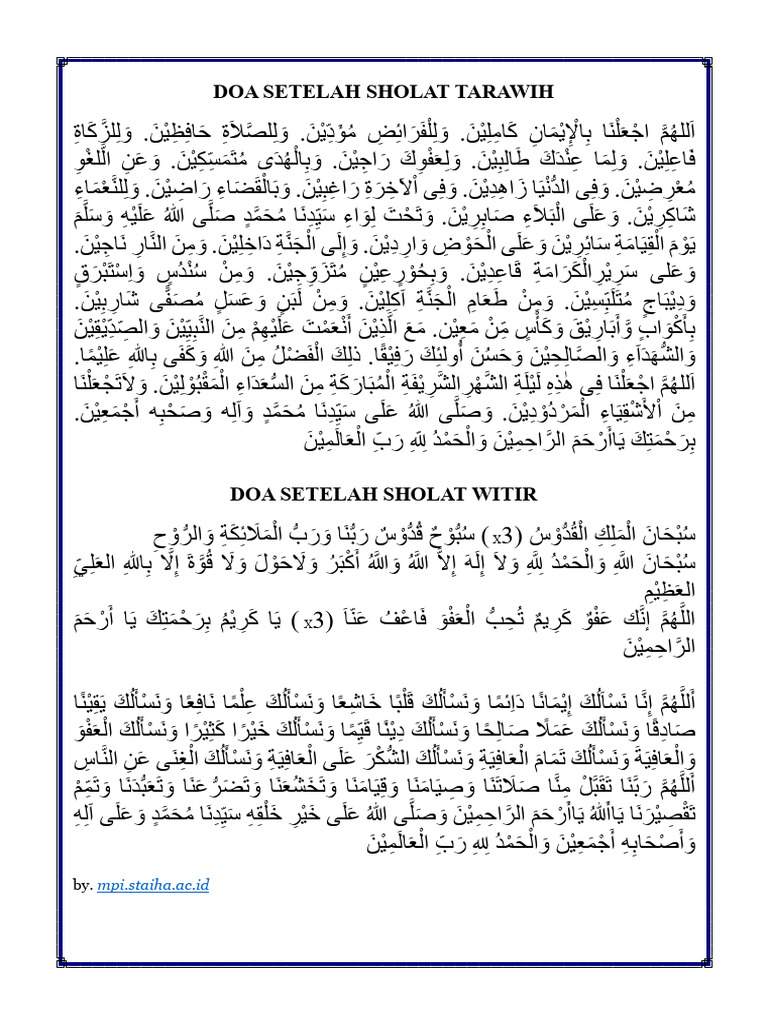 DOA SETELAH SHOLAT TARAWIH
اَللهُمَّ اجْعَلْنَا بِالْإِيْمَانِ كَامِلِيْنَ. وَلِلْفَرَائِضِ مُؤَدِّيْنَ. وَلِلصَّلاَةِ حَافِظِيْنَ. وَلِلزَّكَاةِ
فَاعِلِيْنَ. وَلِمَا عِنْدَكَ طَالِبِيْنَ. وَلِعَفْوِكَ رَاجِيْنَ. وَبِالْهُدَى مُتَمَسِّكِيْنَ. وَعَنِ الَّلغْوِ
مُعْرِضِيْنَ. وَفِى الدُّنْيَا زَاهِدِيْنَ. وَفِى اْلآخِرَةِ رَاغِبِيْنَ. وَبَالْقَضَاءِ رَاضِيْنَ. وَلِلنَّعْمَاءِ
شَاكِرِيْنَ. وَعَلَى الْبَلاَءِ صَابِرِيْنَ. وَتَحْتَ لِوَاءِ سَيِّدِنَا مُحَمَّدٍ صَلَّى اللهُ عَلَيْهِ وَسَلَّمَ
يَوْمَ الْقِيَامَةِ سَائِرِيْنَ وَعَلَى الْحَوْضِ وَارِدِيْنَ. وَإِلَى الْجَنَّةِ دَاخِلِيْنَ. وَمِنَ النَّارِ نَاجِيْنَ.
وَعَلى سَرِيْرِالْكَرَامَةِ قَاعِدِيْنَ. وَبِحُوْرِعِيْنٍ مُتَزَوِّجِيْنَ. وَمِنْ سُنْدُسٍ وَاِسْتَبْرَقٍ
وَدِيْبَاجٍ مُتَلَبِّسِيْنَ. وَمِنْ طَعَامِ الْجَنَّةِ آكِلِيْنَ. وَمِنْ لَبَنٍ وَعَسَلٍ مُصَفًّى شَارِبِيْنَ.
بِأَكْوَابٍ وَّأَبَارِيْقَ وَكَأْسٍ مِّنْ مَعِيْن. مَعَ الَّذِيْنَ أَنْعَمْتَ عَلَيْهِمْ مِنَ النَّبِيِّيْنَ وَالصِّدِّيْقِيْنَ
وَالشُّهَدَآءِ وَالصَّالِحِيْنَ وَحَسُنَ أُولئِكَ رَفِيْقًا. ذلِكَ الْفَضْلُ مِنَ اللهِ وَكَفَى بِاللهِ عَلِيْمًا.
اَللهُمَّ اجْعَلْنَا فِى هٰذِهِ لَيْلَةِ الشَّهْرِ الشَّرِيْفَةِ الْمُبَارَكَةِ مِنَ السُّعَدَاءِ الْمَقْبُوْلِيْنَ. وَلاَتَجْعَلْنَا
مِنَ اْلأَشْقِيَاءِ الْمَرْدُوْدِيْنَ. وَصَلَّى اللهُ عَلَى سَيِّدِنَا مُحَمَّدٍ وَآلِه وَصَحْبِه أَجْمَعِيْنَ.
بِرَحْمَتِكَ يَاأَرْحَمَ الرَّاحِمِيْنَ وَالْحَمْدُ لِلّهِ رَبِّ الْعَالَمِيْنَ
DOA SETELAH SHOLAT WITIR
سُبْحَانَ الْمَلِكِ الْقُدُّوْسُ (3x) سُبُّوْحٌ قُدُّوْسٌ رَبُّنَا وَرَبُّ الْمَلَائِكَةِ وَالرُّوْحِ
سُبْحَانَ اللَّهِ وَالْحَمْدُ لِلَّهِ وَلاَ إِلَهَ إِلاَّ اللَّهُ وَاللَّهُ أَكْبَرُ وَلَاحَوْلَ وَلَا قُوَّةَ إِلَّا بِاللهِ العَلِيِّ
العَظِيْمِ
اللَّهُمَّ إِنَّكَ عَفْوٌ كَرِيمٌ تُحِبُّ الْعَفْوَ فَاعْفُ عَنَّا (3x) يَا كَرِيْمُ بِرَحْمَتِكَ يَا أَرْحَمَ
الرَّاحِمِيْنَ
أَللَّهُمَّ إِنَّا نَسْأَلُكَ إِيْمَانًا دَائِمًا وَنَسْأَلُكَ قَلْبًا خَاشِعًا وَنَسْأَلُكَ عِلْمًا نَافِعًا وَنَسْأَلُكَ يَقِيْنًا
صَادِقًا وَنَسْأَلُكَ عَمَلًا صَالِحًا وَنَسْأَلُكَ دِيْنًا قَيِّمًا وَنَسْأَلُكَ خَيْرًا كَثِيْرًا وَنَسْأَلُكَ الْعَفْوَ
وَالْعَافِيَةَ وَنَسْأَلُكَ تَمَامَ الْعَافِيَةِ وَنَسْأَلُكَ الشُّكْرَ عَلَى الْعَافِيَةِ وَنَسْأَلُكَ الْغِنَى عَنِ النَّاسِ
أَللَّهُمَّ رَبَّنَا تَقَبَّلْ مِنَّا صَلَاتَنَا وَصِيَامَنَا وَقِيَامَنَا وَتَخَشُّعَنَا وَتَضَرُّعَنَا وَتَعَبُّدَنَا وَتَمِّمْ
تَقْصِيْرَنَا يَاأَللهُ يَاأَرْحَمَ الرَّاحِمِيْنَ وَصَلَّى اللهُ عَلَى خَيْرِ خَلْقِهِ سَيِّدِنَا مُحَمَّدٍ وَعَلَى آلِهِ
وَأَصْحَابِهِ أَجْمَعِيْنَ وَالْحَمْدُ لِلهِ رَبِّ الْعَالَمِيْنَ
by. mpi.staiha.ac.id